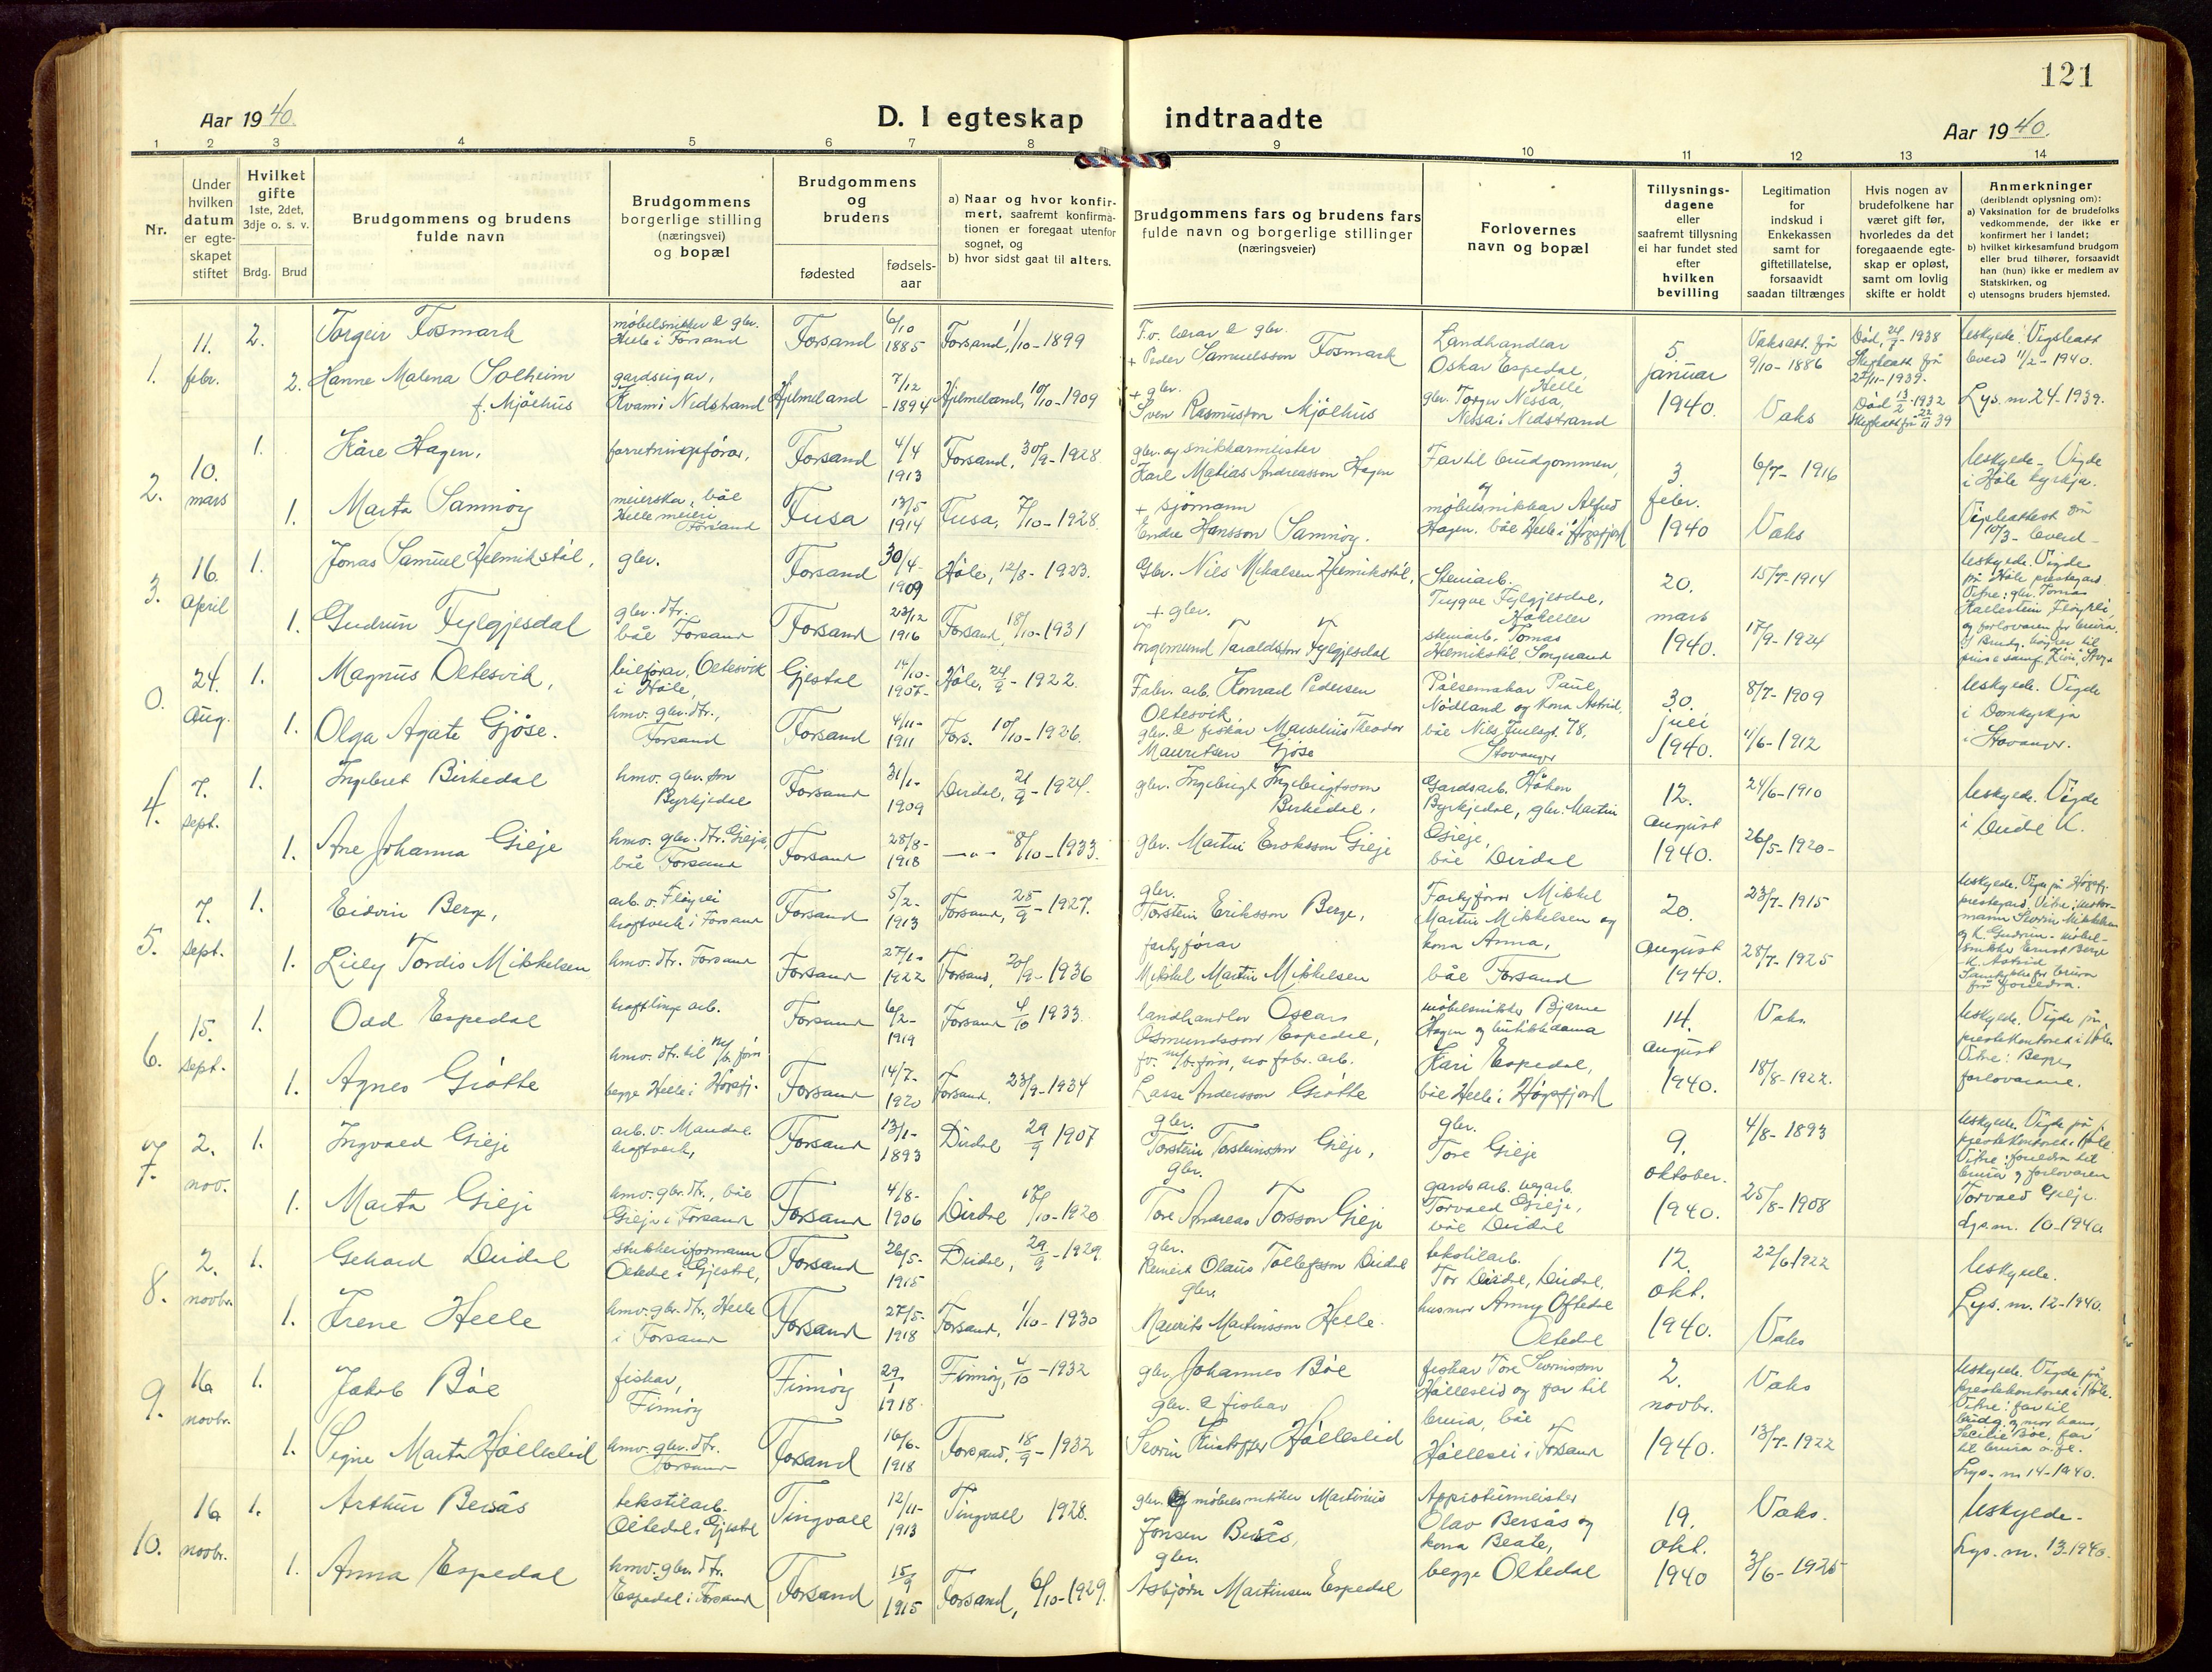 121
Aar 1940.
D. I egteskap indtraadte
Aar 1940.
1 2 3 4 5 6 7 8 9 10 11 12 13 14
Nr.
Under hvilken datum er egteskapet stiftet
Hvilket gifte
1ste, 2det, 3dje o. s. v.
Brdg. Brud
Brudgommens og brudens fulde navn
Brudgommens borgerlige stilling (næringsvei) og bopæl
Brudgommens og brudens
fødested
fødselsaar
a) Naar og hvor konfirmert, saafremt konfirmationen er foregaat utenfor sognet, og
b) hvor sidst gaat til alters.
Brudgommens fars og brudens fars fulde navn og borgerlige stillinger (næringsveier)
Forlovernes navn og bopæl
Tillysningsdagene eller saafremt tillysning ei har fundet sted efter hvilken bevilling
Legitimation for indskud i Enkekassen samt for giftetillatelse, forsaavidt saadan tiltrænges
Hvis nogen av brudefolkene har været gift før, hvorledes da det foregaaende egteskap er opløst, samt om lovlig skifte er holdt
Anmerkninger
(deriblandt oplysning om):
a) Vaksination for de brudefolks vedkommende, der ikke er konfirmert her i landet;
b) hvilket kirkesamfund brudgom eller brud tilhører, forsaavidt han (hun) ikke er medlem av Statskirken, og
c) utensogns bruders hjemsted.
1.
11. febr.
2.
Torgeir Fosmark
møbelsnikker & gbr.
Helle i Forsand
Forsand
6/10 1885
Forsand, 1/10-1899
F.v. lærar & gbr.
+ Peder Samuelsson Fosmark
Landhandlar
Oskar Espedal,
Helle
5. januar 1940.
Vaksatt. frå
9/10-1886
Død, 24/7-1938
Skifteatt. frå
22/11-1939.
Uskylde. Vigsleatt
Overd 11/2-1940.
2.
Hanne Malena Solheim
f. Mjølhus
gardeigar,
Kvam i Nedstrand
Hjelmeland
7/12-1894
Hjelmeland, 10/10-1909
+ gbr.
Sven Rasmusson Mjølhus
gbr. Torger Nessa,
Nessa i Nedstrand
Vaks
Død 13/2-1932
Skifteatt frå 22/11 39
Lys. nr. 24-1939.
2.
10. mars
1.
Kåre Hagen,
forretningsførar,
Forsand
4/4 1913
Forsand, 30/9-1928.
gbr. og snikkarmeister
Karl Matias Andreasson Hagen
Far til brudgommen,
og
3. febr. 1940
6/7-1916
Uskylde. Vigde
i Høle kyrkja.
1.
Marta Samnøy
meierska, bæe
Helle meieri
Forsand
Fusa
13/5 1914
Fusa, 7/10-1928.
+ sjømann
Endre Hansson Samnøy.
møbelsnikkar Alfred
Hagen. båe Helle i Høgsfjord
Vaks
Vigsleattest
10/3- Overd-
3.
16. April
1.
Jonas Samuel Helmikstøl,
gbr.
Forsand
30/4-1909
Høle, 12/8-1923.
Gbr. Nils Mikalsen Helmikstøl,
Steinarb.
Trygve Fylgjesdal,
20. mars 1940.
15/7-1914
Uskylde. Vigde
på Høle prestegard.
1.
Gudrun Fylgjesdal
gbr. dtr.
båe Forsand
Forsand
23/12 1916
Forsand, 18/10-1931
+ gbr.
Ingemund Taraldsson Fylgjesdal
steinarb. Tomas
Helmikstøl Songesand
17/9-1924
Vitne: gbr. Tomas
og forlovaren for brura.
0.
24. Aug.
1.
Magnus Oltesvik,
bilførar, Oltesvik
i Høle,
Gjestal
14/10-1907-
Høle, 24/9-1922.
Fabr. arb. Konrad Pedersen
Oltesvik
Pølsemakar Paul
Nødland og kona Astrid,
30. juli 1940.
8/7-1909
Uskylde. Vigde
i Domkyrkja
i Stavanger.
1.
Olga Agate Gjøse.
hmv. gbr. dtr.,
Forsand
Forsand
4/11-1911
Fors. 10/10-1926.
gbr. & fiskar Masselius Theodor
Mauritsen Gjøse
båe Nils Juelsgt. 78,
Stavanger
11/6-1912
4.
7. sept.
1.
Ingebret Birkedal
hmv. gbr. son
Byrkjedal
Forsand
31/1-1909
Dirdal, 21/9-1924.
gbr. Ingebrigt Ingebrigtsson
Birkedal,
Gardsarb. Håkon
Byrkjedal, gbr. Martin
12. august 1940.
24/6-1910
Uskylde. Vigde
i Dirdal K.
1.
Ane Johanna Gilje
hmv. gbr. dtr. Gilje,
båe Forsand
Forsand
28/8-1918
—"— 8/10-1933.
gbr. Martin Eriksson Gilje
Gilje,
båe Dirdal
26/5-1920-
5.
7. sept.
1.
Eidvin Berge,
arb. v. Fløyrli
kraftverk i Forsand
Forsand
5/2-1913
Forsand, 25/9-1927.
gbr.
Torstein Eriksson Berge,
Farkjførar Mikkel
Martin Mikkelsen og
20. august 1940.
23/7-1915
Uskylde. Vigde på Høgsfj.
prestegard.
1.
Lilly Tordis Mikkelsen
hmv. dtr. Forsand
Forsand
27/1-1922
Forsand, 20/9-1936
farkjførar
Mikkel Martin Mikkelsen
kona Anna,
båe Forsand
28/7-1925
Samtykke for brura
frå foreldra.
6.
15. sept.
1.
Odd Espedal
kraftlinje arb.
Forsand
6/2-1919
Forsand 4/10 1933.
landhandlar Oscar
Osmundsson Espedal,
møbelsnikkar Bjarne
Hagen og butikkdama
14. august 1940.
Vaks.
Uskylde. Vigde på
prestekontoret i Høle.
1.
Agnes Grøtte
begge Helle i Høgsfj.
Forsand
14/7-1920
Forsand, 23/9-1934
Lasse Andersson Grøtte
Kari Espedal,
båe Helle i Høgsfjord
18/8-1922.
Vitne: Begge
forlovarane.
7.
2. nov.
1.
Ingvald Gilje
arb. v. Maudal
kraftverk,
Forsand
13/1-1893
Dirdal 29/9 1907
gbr.
Torstein Torsteinsson Gilje,
gbr.
Tore Gilje
9. oktober. 1940.
4/8-1893
Uskylde. Vigde på
prestekontoret i Høle.
Vitne: foreldra til
brura og forlovaren
1.
Marta Gilje
hmv. gbr. dtr., båe
Gilje i Forsand
Forsand
4/8-1906
Dirdal 17/10-1920
gbr.
Tore Andreas Torsson Gilje
gardsarb. vegarb.
Torvald Gilje,
båe Dirdal
25/8-1908
Torvald Gilje.
Lys. nr. 10-1940
8.
2. novbr.
1.
Gehard Dirdal
stikkeriformann
Oltedal i Gjestal,
Forsand
26/5-1915
Dirdal, 29/9-1929.
gbr.
Reinert Olaus Tollefsson Dirdal
tekstilarb.
Tor Dirdal, Dirdal.
12. okt. 1940.
22/6 1922
Uskylde.
1.
Irene Helle
hmv. gbr. dtr., Helle
i Forsand
Forsand
27/5-1918
Forsand, 1/10-1930
gbr.
Maurits Martinsson Helle.
husmor Anny Oftedal
Oltedal
Vaks
Lys. nr. 12-1940.
9.
16 novbr.
1.
Jakob Bøe
fiskar,
Finnøy
Finnøy
29/1 1918
Finnøy, 4/10-1932
gbr. Johannes Bøe
fiskar Tore Severinsson
Hålleslid og far til
2. novbr. 1940.
Vaks
Uskylde. Vigde på
prestekontoret i Høle.
Vitne: far til
brudg. og mor hans,
1.
Signe Marta Hølleslid
hmv. gbr. dtr.
Forsand
Forsand
16/6-1918
Forsand, 18/9-1932
gbr. & fiskar
Severin Kristoffer Hålleslid
brura, båe
Høllesli i Forsand
13/7-1922
Cecilie Bøe, far
til brura o. fl.
Lys. nr 14-1940.
10.
16 novbr.
1.
Arthur Bersås
tekstilarb.
Oltedal i Gjestal
Tingvoll
12/11-1913
Tingvoll 1928.
gbr. og møbelsnikker Martinius
Jonsen Bersås,
Appreturmeister
Olav Bersås og
19. okt. 1940
Vaks.
Uskylde.
1.
Anna Espedal
hmv. gbr. dtr.
Espedal i Forsand
Forsand
15/9 1915
Forsand, 6/10-1929.
gbr.
Asbjørn Martinsen Espedal
kona Beate,
begge Oltedal
3/6-1925
Lys. nr. 13-1940.